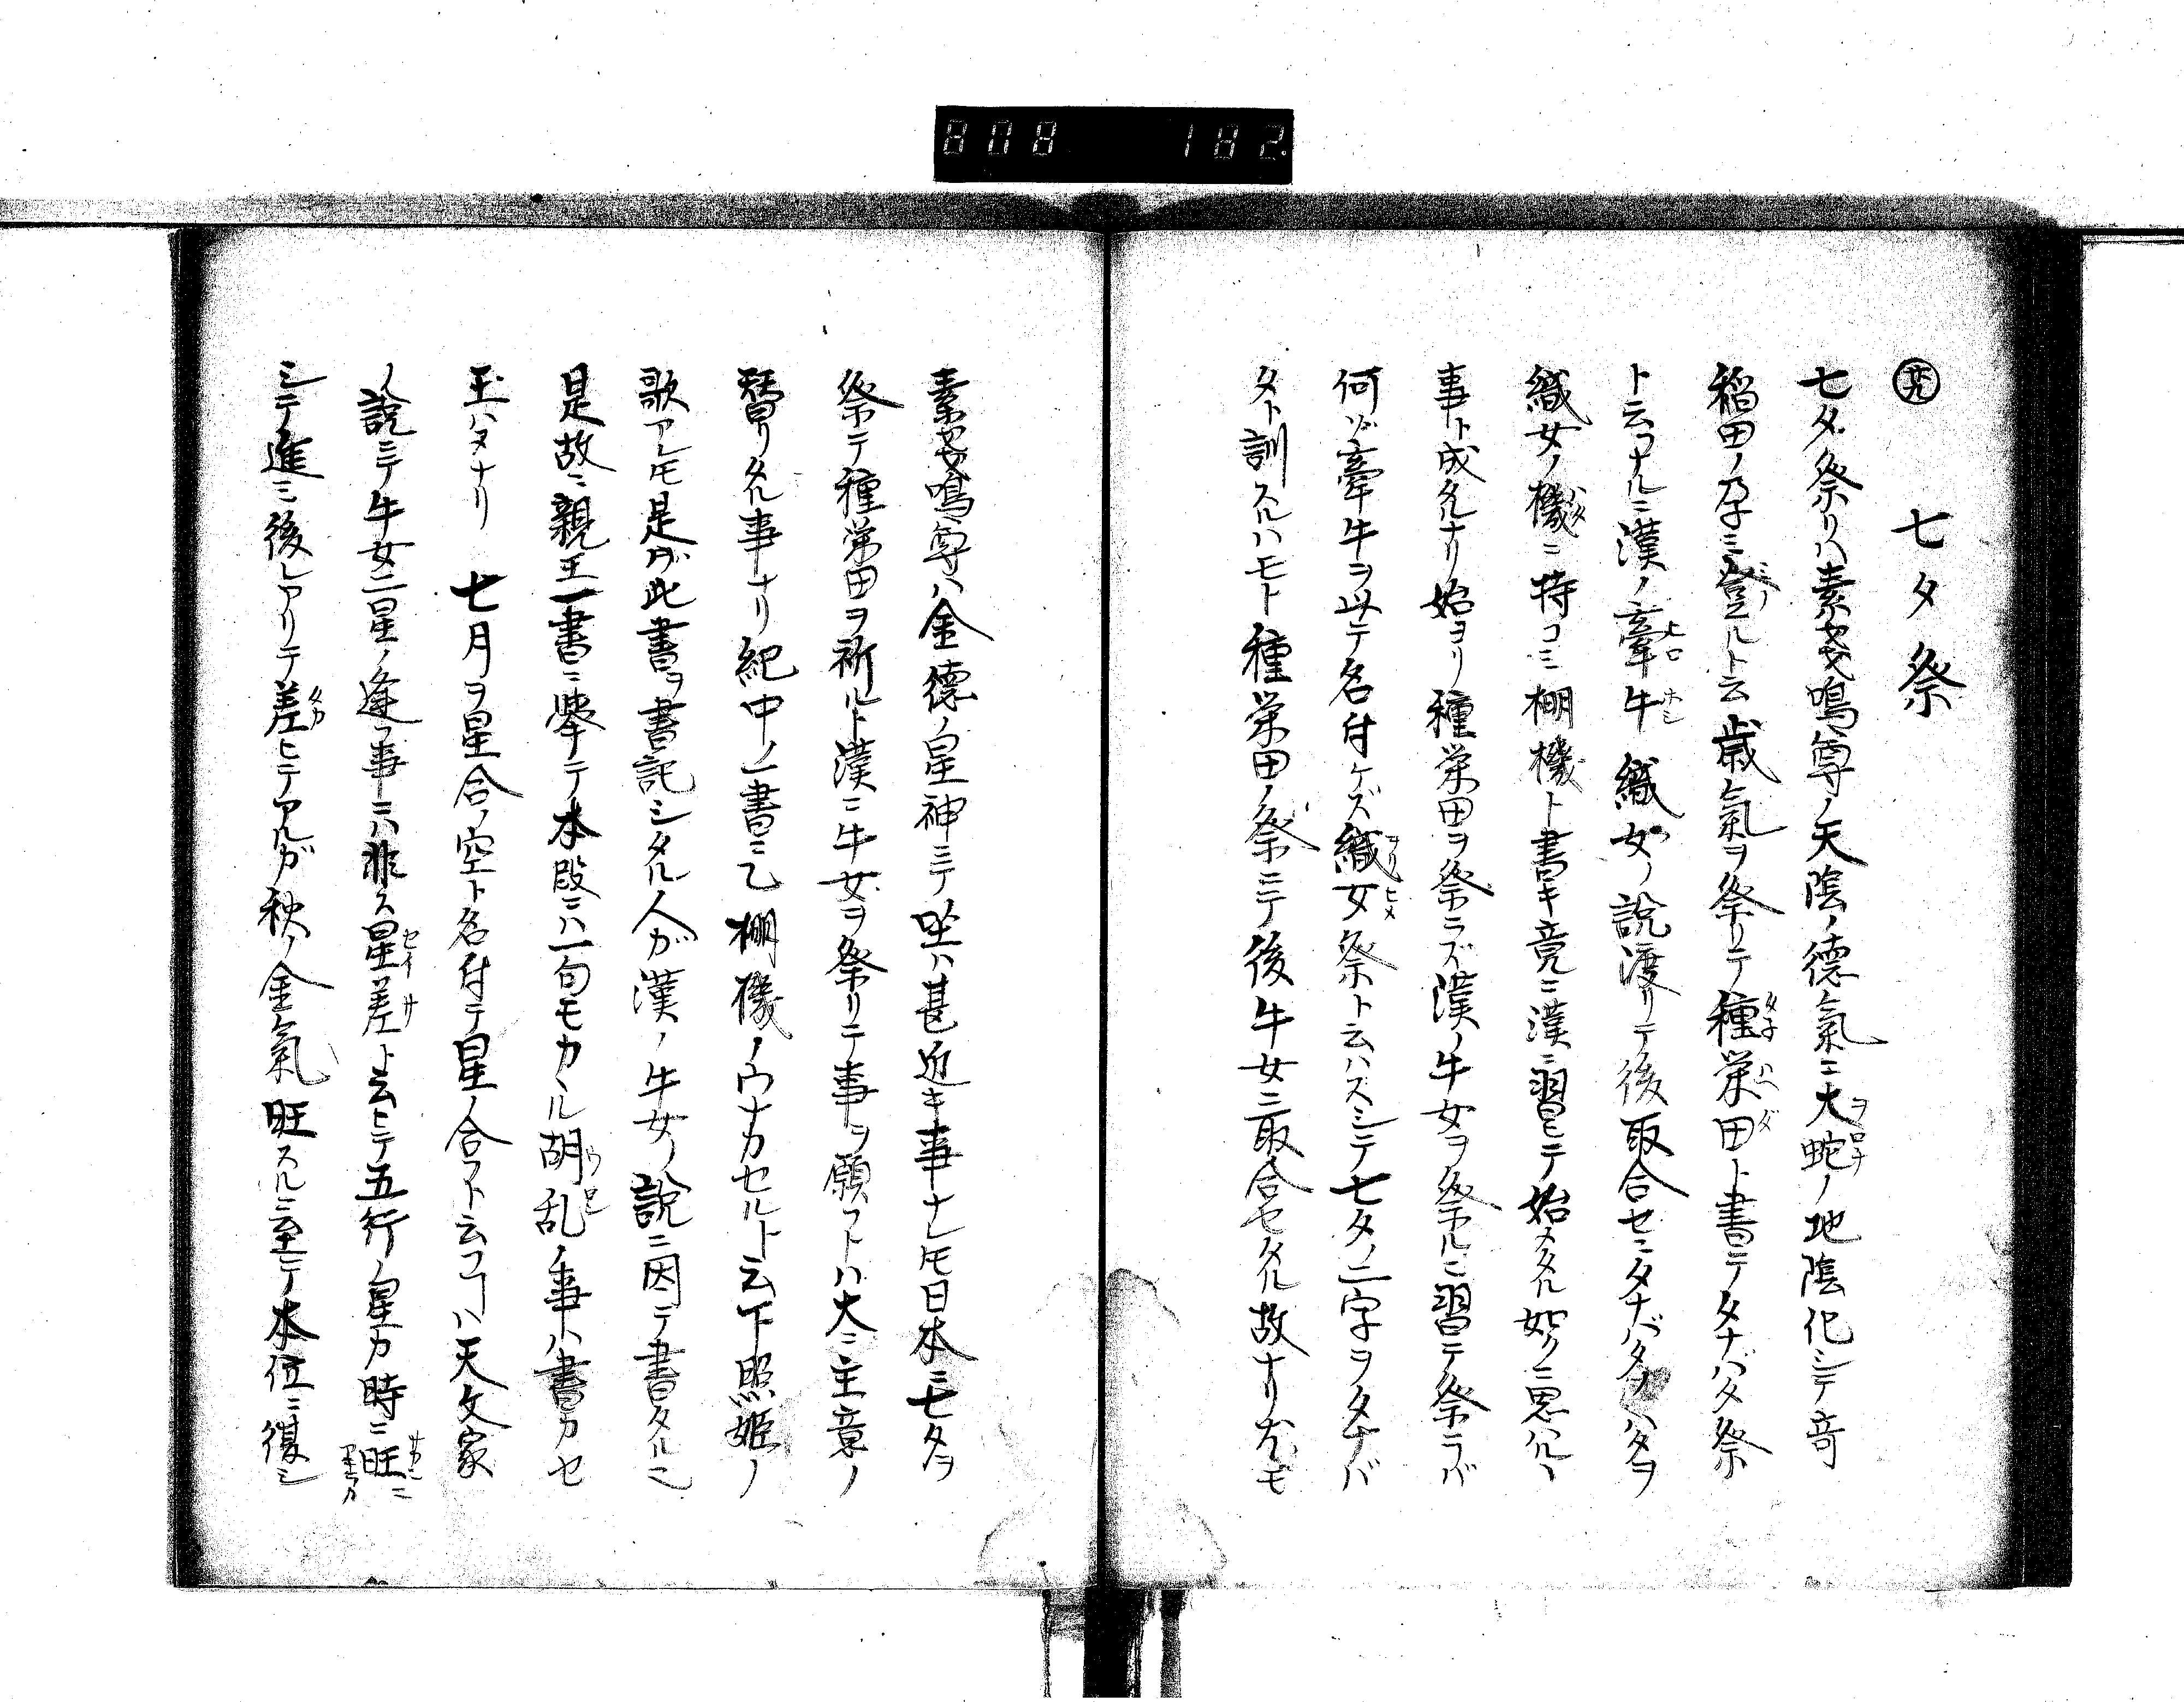 808 182.
七夕祭
七夕祭リハ素戔嗚尊ノ天陰ノ德氣ニ大蛇ノ地陰化シテ奇
稲田ノ孕ミ登ルト云歳氣ヲ祭リテ種栄田ト書テタナバタ祭
ト云フナルニ漢ノ牽牛織女ノ說渡リテ後取合セミタナバタヲハタヲ
織女ノ機ニ持コミ棚機ト書キ竟ニ漢ニ習ヒテ始メタル如クニ思ハルヽ
事ト成タルナリ始ヨリ種栄田ヲ祭ラズ漢ノ牛女ヲ祭ルニ習テ祭ラバ
何ゾ牽牛ヲ以テ名付ケズ織女祭ト云ハスシテ七夕ノ二字ヲタナバ
タト訓スルハモト種栄田ノ祭ニテ後牛女ニ取合セタル故ナリ尤モ
素戔嗚尊ハ金德ノ星神ニテ坐ハ甚近キ事ナレ𪜈日本ニ七夕ヲ
祭テ種栄田ヲ祈ルト漢ニ牛女ヲ祭リテ事ヲ願フトハ大ニ主意ノ
替リタル事ナリ紀中ノ一書ニ乙棚機ノウナカセルト云下照姫ノ
歌アレ𪜈是ガ此書ヲ書記シタル人ガ漢ノ牛女ノ說ニ因テ書タルニ
是故ニ親王一書ニ擧テ本段ニハ一句モカヽル胡乱ノ事ハ書カセ
玉ハヌナリ 七月ヲ星合ノ空ト名付テ星ノ合フト云フヿハ天文家
ノ說ニテ牛女二星ノ逢フ事ニハ非ス星差ト云ヒテ五行ノ星カ時ニ旺ニ
シテ進ミ後レアリテ差ヒテアルガ秋ノ金氣旺スルニ至テ本位ニ復シ